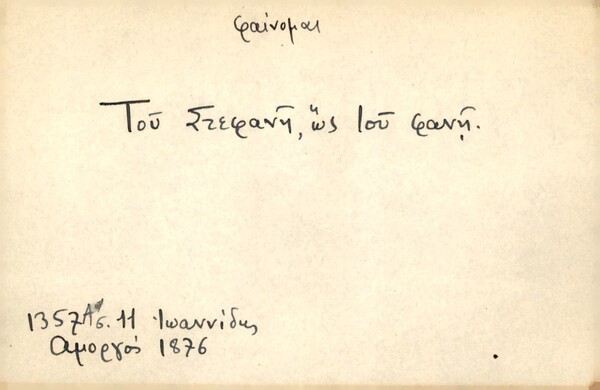 φαίνομαι
Τοῦ Στεφανῆ, ὥς ἰοῦ φανῇ.
1357 Ἀσ. 11 Ἰωαννίδης
Αμοργός 1876